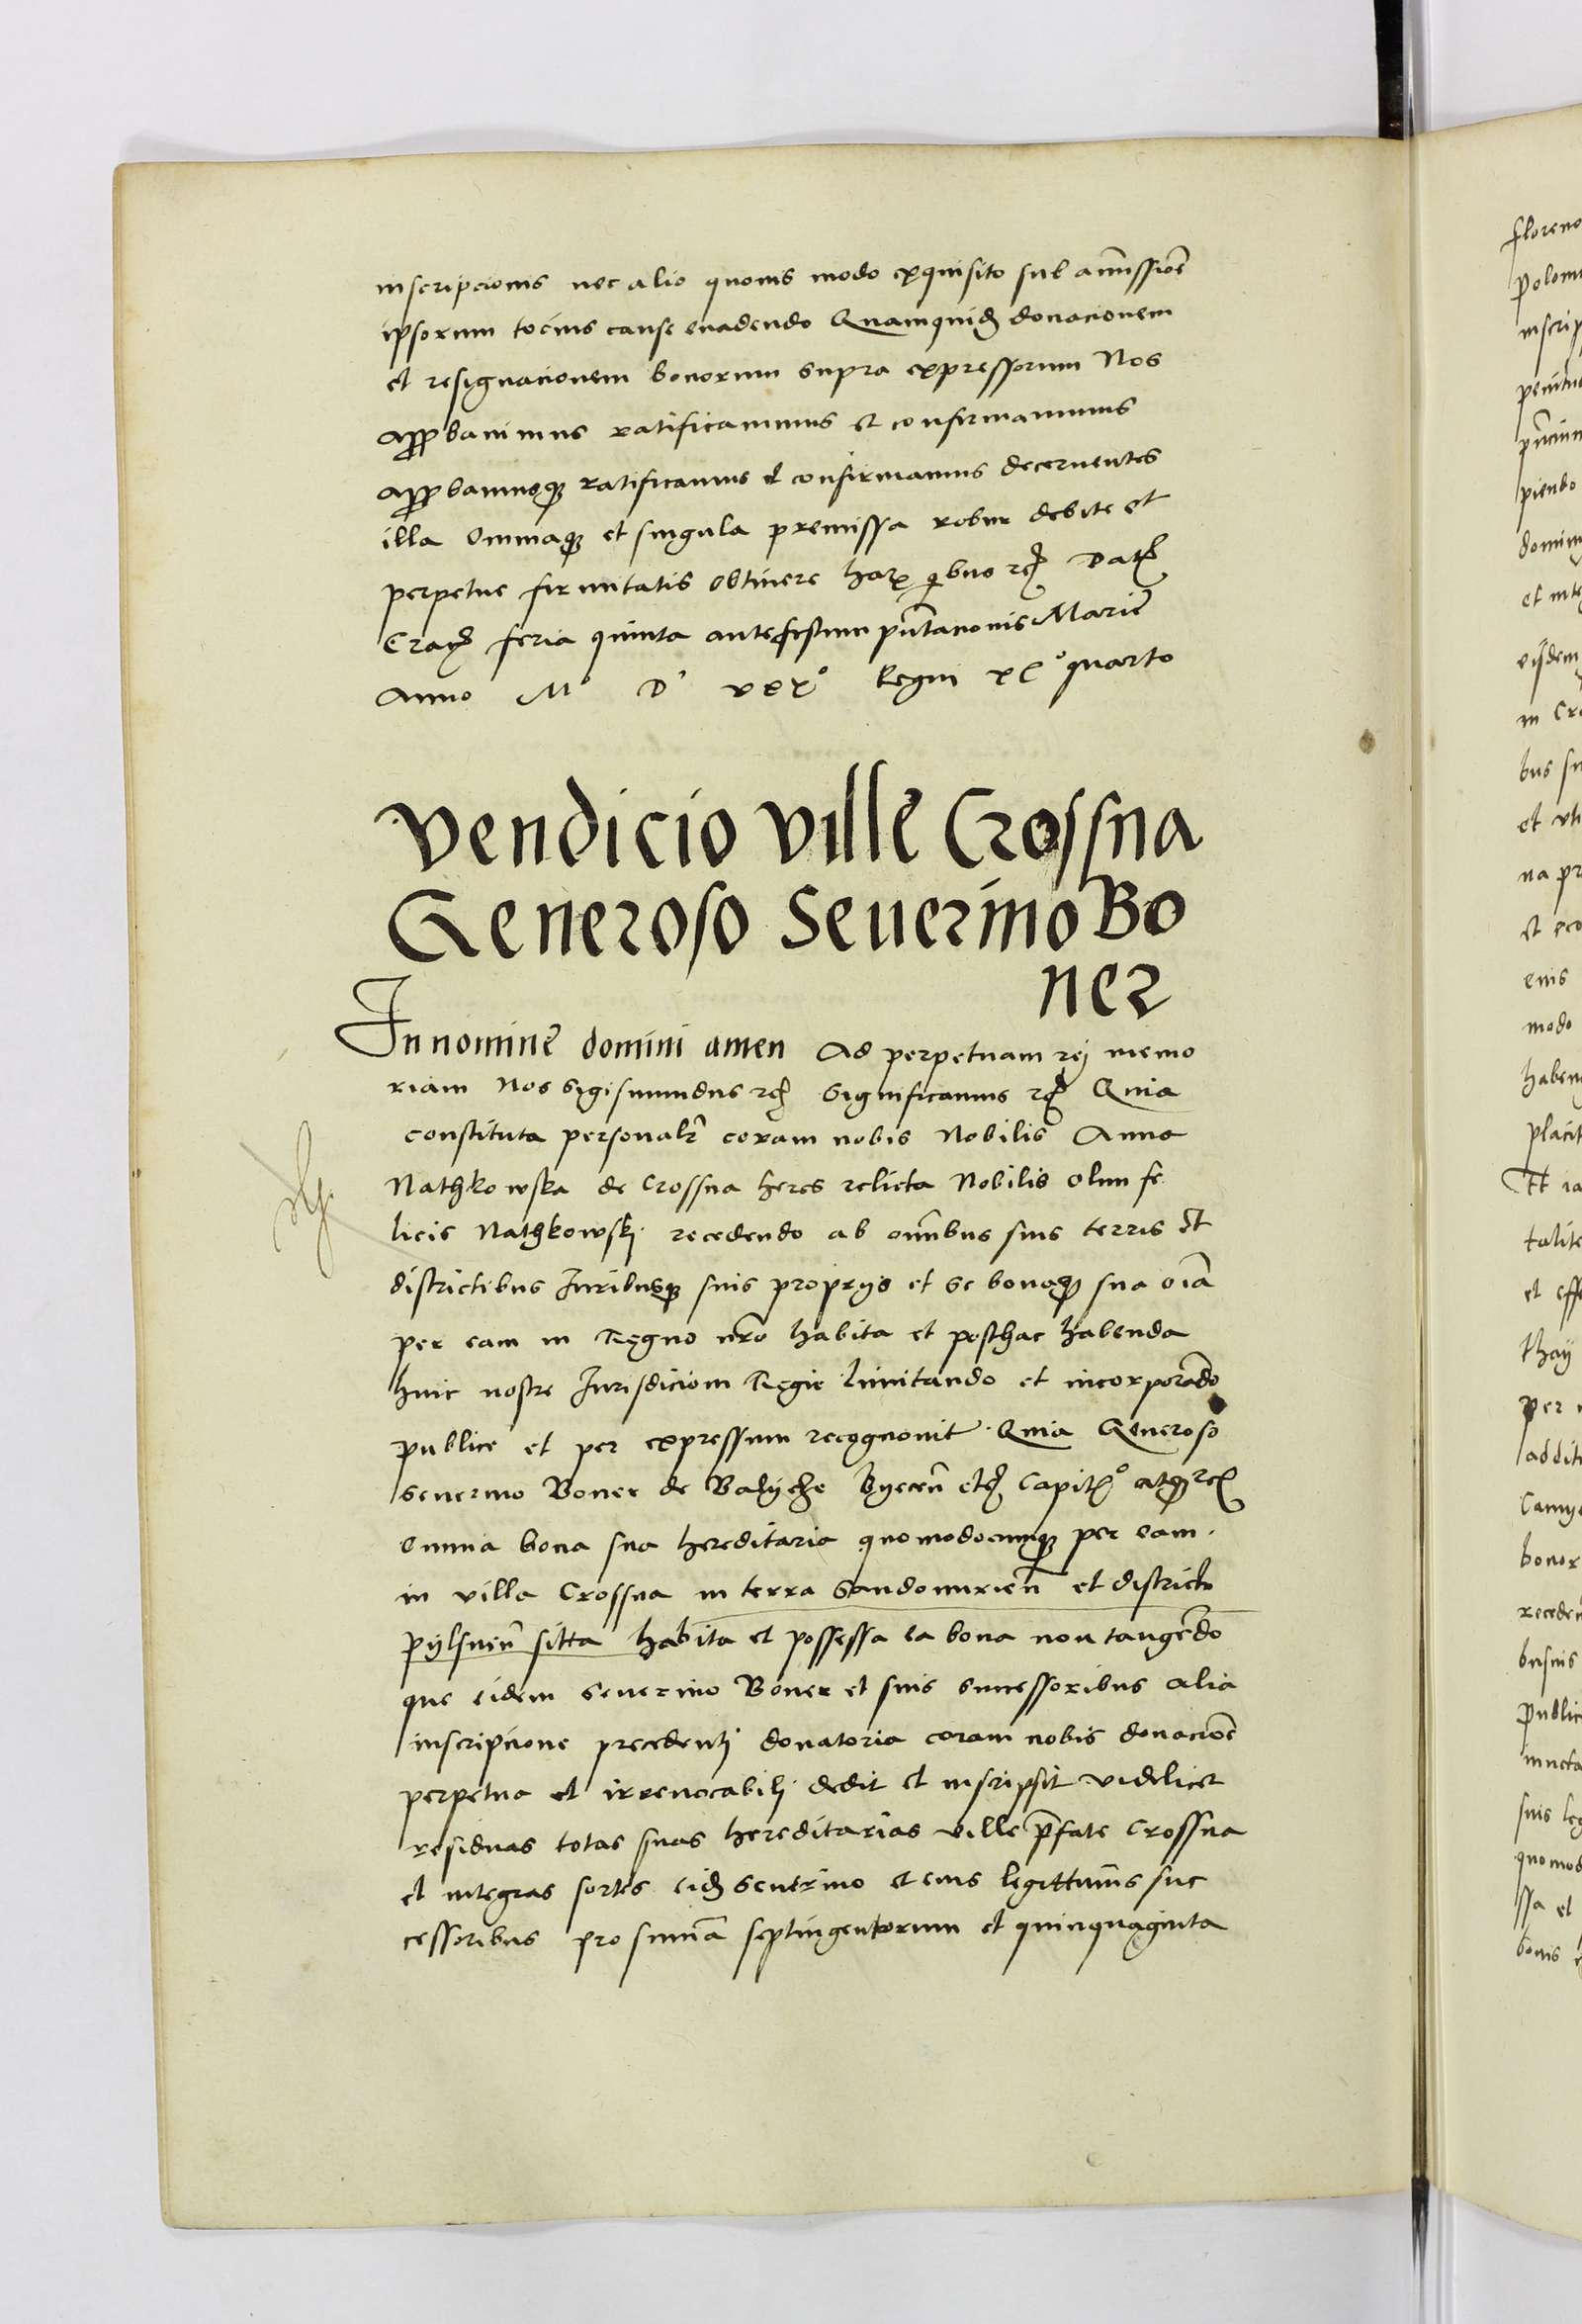 inscripcionis nec alio quovis modo exquisito sub amissiõe
ipsorum tocius cause evadendo Quamquid donacionem
et resignacionem bonorum supra expressorum Nos
approbavimus ratificavimus et confirmavimus
approbamusque ratificamus et confirmamus decernentes
illa Omniaque et singula premissa robur debite et
perpetue firmitatis obtinere harum quibus etc Dat
Crac feria quinta ante festum pñtacionis Marie
Anno Mº Dº Regni quarto
Vendicio ville Crossna
Generoso Severino Bo
ner
In nomine domini amen Ad perpetuam rei memo
riam Nos Sigismundus etc Significamus etc Quia
constituta personalr coram nobis Nobilis Anna
Nathkowska de Crossna heres relicta Nobilis olim fe
licis Nathkowskj recedendo ab omnibus suis terris et
districtibus Juribusque suis proprys et se bonaque sua oia
per eam in Regno nro habita et posthac habenda
huic nostre Jurisdicioni Regie limitando et incorporando
publice et per expressum recognovit Quia Generoso
Severino Boner de Balyche Byecen etc Capit
omnia bona sua hereditaria quomodocumque per eam
in villa Crossna in terra Sandomirien et districtu
pylsnen sitta habita et possessa ea bona non tangendo
que eidem Severino Boner et suis successoribus alia
inscripcione precedentj donatoria coram nobis donacione
perpetua et irrevocabilj dedit et inscripsit videlicet
residuas totas suas hereditarias ville pfate Crossna
et integras sortes eid Severino et eius legittimis suc
cessoribus pro summa septingentorum et quinquaginta